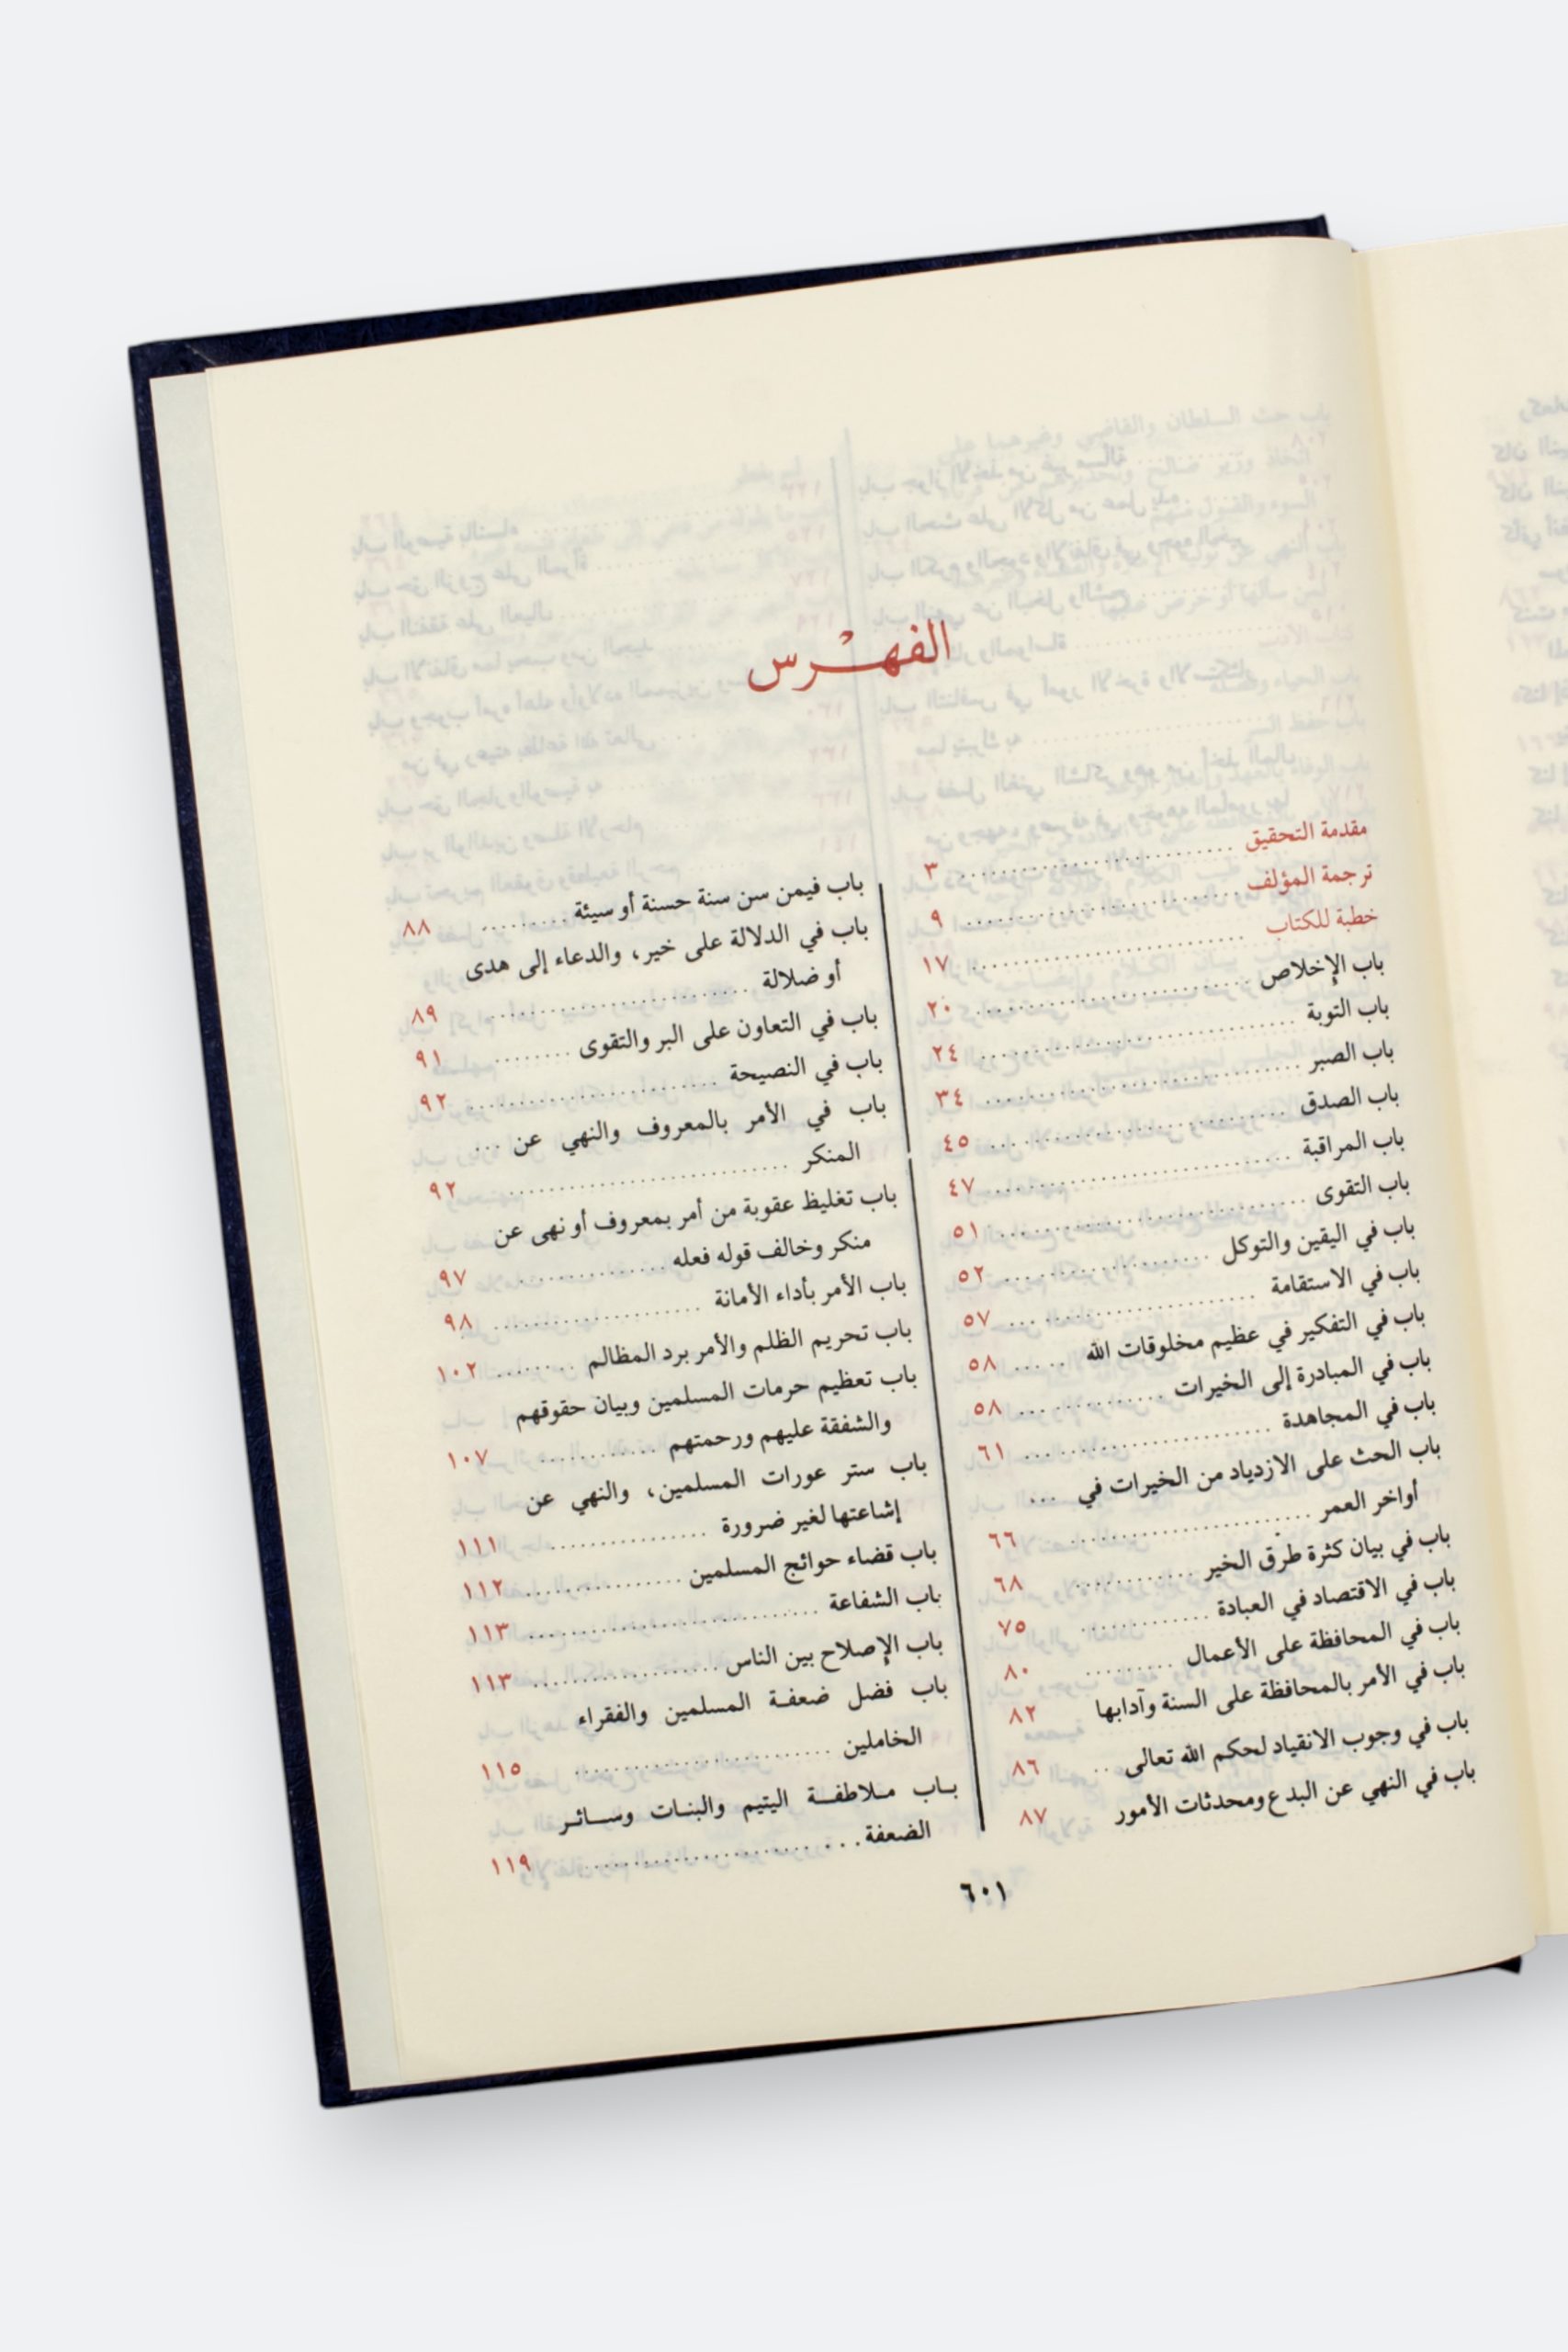 الفهْرس
مقدمة التحقيق .......................... ٣
ترجمة المؤلف .......................... ٩
خطبة للكتاب .......................... ١٧
باب الإخلاص .......................... ٢٠
باب التوبة .......................... ٢٤
باب الصبر .......................... ٣٤
باب الصدق .......................... ٤٥
باب المراقبة .......................... ٤٧
باب التقوى .......................... ٥١
باب في اليقين والتوكل .................... ٥٢
باب في الاستقامة .................... ٥٧
باب في التفكير في عظيم مخلوقات الله ..... ٥٨
باب في المبادرة إلى الخيرات .............. ٥٨
باب في المجاهدة .................... ٦١
باب الحث على الازدياد من الخيرات في ...
أواخر العمر .................... ٦٦
باب في بيان كثرة طرق الخير ............ ٦٨
باب في الاقتصاد في العبادة ............ ٧٥
باب في المحافظة على الأعمال .......... ٨٠
باب في الأمر بالمحافظة على السنة وآدابها ٨٢
باب في وجوب الانقياد لحكم الله تعالى .. ٨٦
باب في النهي عن البدع ومحدثات الأمور ٨٧
باب فيمن سن سنة حسنة أو سيئة ......... ٨٨
باب في الدلالة على خير، والدعاء إلى هدى
أو ضلالة .......................... ٨٩
باب في التعاون على البر والتقوى ........ ٩١
باب في النصيحة .......................... ٩٢
باب في الأمر بالمعروف والنهي عن ...
المنكر .......................... ٩٢
باب تغليظ عقوبة من أمر بمعروف أو نهى عن
منكر وخالف قوله فعله ............... ٩٧
باب الأمر بأداء الأمانة .................... ٩٨
باب تحريم الظلم والأمر برد المظالم ........ ١٠٢
باب تعظيم حرمات المسلمين وبيان حقوقهم
والشفقة عليهم ورحمتهم ............ ١٠٧
باب ستر عورات المسلمين، والنهي عن
إشاعتها لغير ضرورة ................ ١١١
باب قضاء حوائج المسلمين ................ ١١٢
باب الشفاعة .......................... ١١٣
باب الإصلاح بين الناس .................. ١١٣
باب فضل ضعفة المسلمين والفقراء
الخاملين .......................... ١١٥
باب ملاطفة اليتيم والبنات وسائر
الضعفة .......................... ١١٩
٦٠١